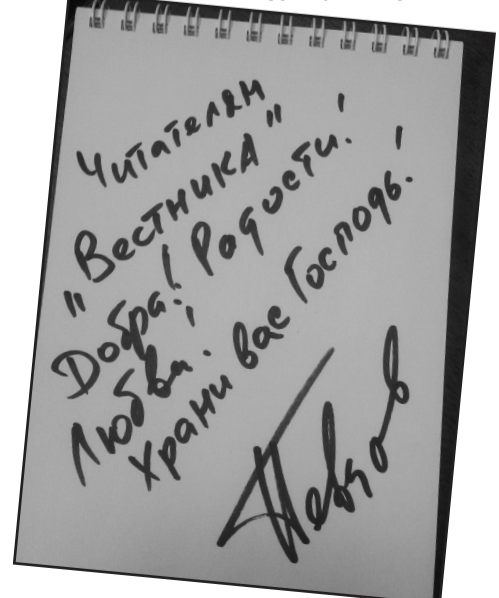 Читателям
"Вестника"
Добра! Радости!
Любви!
Храни вас Господь!
Певцов